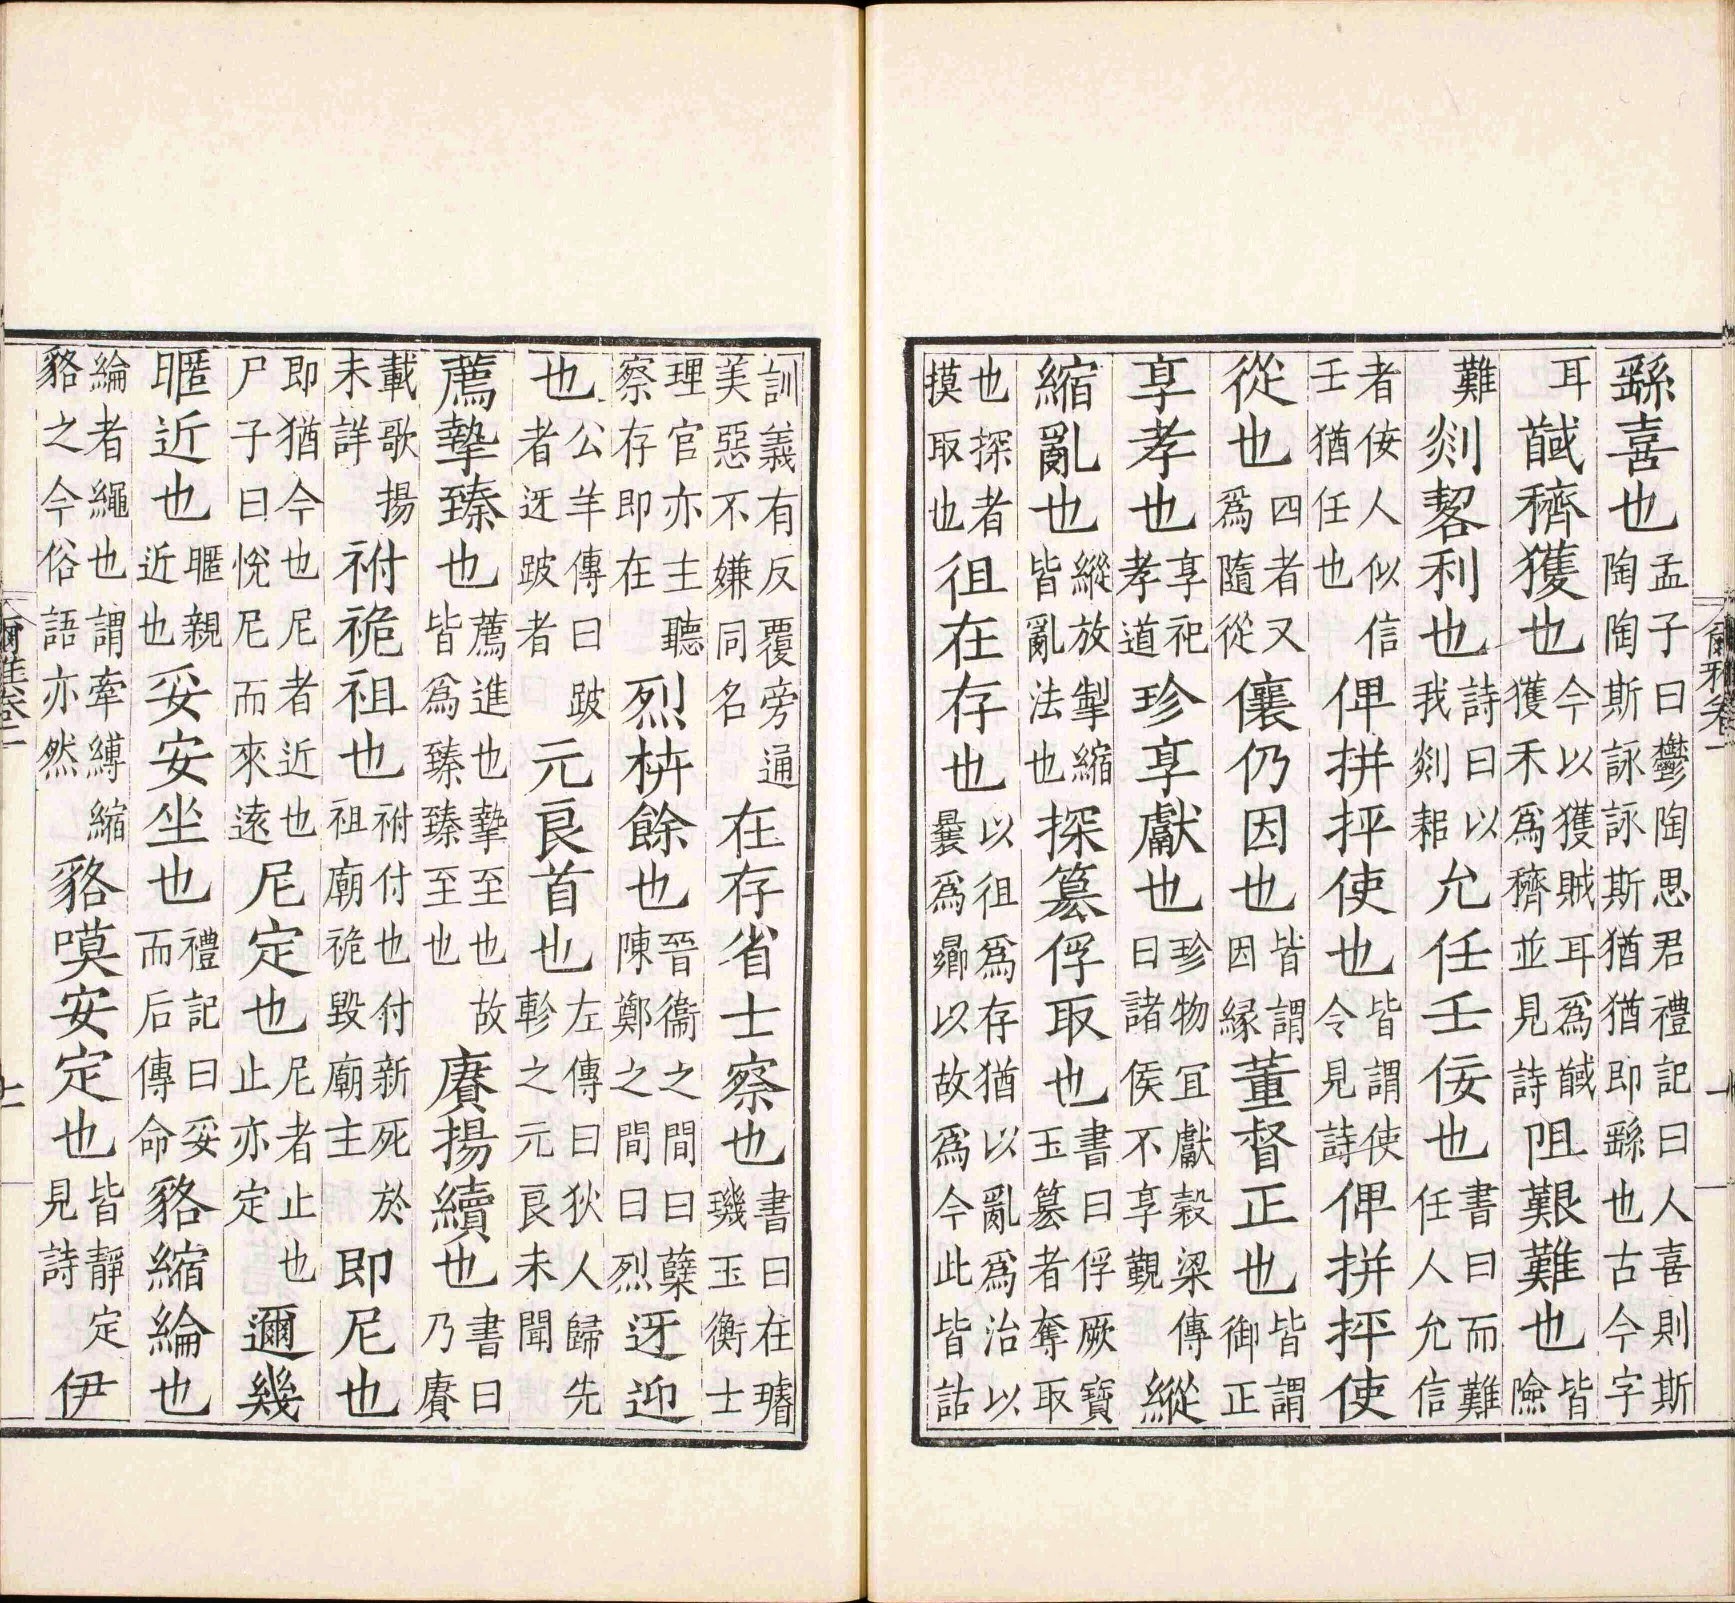 繇喜也孟子曰鬱陶思君禮記曰人喜則斯陶陶斯詠詠斯猶猶即繇也古今字
耳馘穧獲也今以獲賊耳爲馘獲禾爲穧並見詩阻艱難也皆險
難剡䂮利也詩曰以我剡耜允任壬佞也書曰而難任人允信
者佞人似信壬猶任也俾拼抨使也皆謂使令見詩俾拼抨使
從也四者又爲隨從儴仍因也皆謂因緣董督正也皆謂御正
享孝也享祀孝道珍享獻也珍物宜獻穀梁傳曰諸侯不享覲縱
縮亂也縱放掣縮皆亂法也探篡俘取也書曰俘厥寶玉篡者奪取
也探者摸取也徂在存也以徂爲存猶以亂爲治以曩爲曏以故爲今此皆詁
爾雅卷一
十
訓義有反覆旁通美惡不嫌同名在存省士察也書曰在璿璣玉衡士
理官亦主聽察存即在烈枿餘也晉衞之間曰櫱陳鄭之間曰烈迓迎
也公羊傳曰跛者迓跛者元良首也左傳曰狄人歸先軫之元良未聞
薦摯臻也薦進也摯至也故皆爲臻臻至也賡揚續也書曰乃賡
載歌揚未詳祔祪祖也祔付也付新死於祖廟祪毀廟主即尼也
即猶今也尼者近也尸子曰悅尼而來遠尼定也尼者止也止亦定邇幾
暱近也暱親近也妥安坐也禮記曰妥而后傳命貉縮綸也
綸者繩也謂牽縛縮貉之今俗語亦然貉嗼安定也皆靜定見詩伊